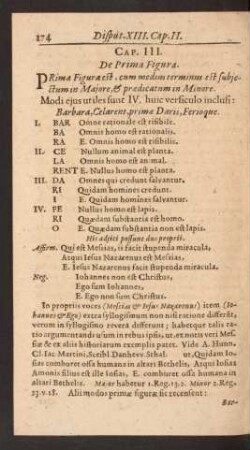 174 Disput. XIII. Cap. II.
CAP. III.
De Prima Figura.
PRima Figura est, cum medius terminus est subje-
ctum in Majore, & prædicatum in Minore.
Modi ejus utiles sunt IV. huic versiculo inclusi:
Barbara, Celarent, primæ Darii, Ferioque.
I. BAR Omne rationale est risibile.
BA Omnis homo est rationalis.
RA E. Omnis homo est risibilis.
II. CE Nullum animal est planta.
LA Omnis homo est animal.
RENT E. Nullus homo est planta.
III. DA Omnes qui credunt salvantur,
RI Quidam homines credunt.
I E. Quidam homines salvantur.
IV. FE Nullus homo est lapis.
RI Quædam substantia est homo.
O E. Quædam substantia non est lapis.
His adjici possunt duo proprii.
Affirm. Qui est Messias, is facit stupenda miracula,
Atqui Iesus Nazarenus est Messias,
E. Iesus Nazarenus facit stupenda miracula.
Neg. Iohannes non est Christus,
Ego sum Iohannes,
E. Ego non sum Christus.
In propriis voces (Messias & Iesus Nazarenus) item (Io-
hannes & Ego) extra syllogismum non nisi ratione differût,
verum in syllogismo revera different; habetque talis ra-
tio argumentandi usum in rebus ipsis, ut, et notis veri Mes-
siæ & ex aliis historiarum exemplis patet. Vide A. Hunn.
Cl. Iac. Martini, Sceibl. Danhevv. &thal. ut, Quidam Io-
sias comburet ossa humana in altari Bethelis, Atqui Iosias
Amonis filius est ille Iosias, E. comburet ossa humana in
altari Bethelis. Major habetur 1. Reg. 13. 2. Minor 2. Reg.
23. v. 18. Alii modos primæ figuræ sic recensent:
Bar-